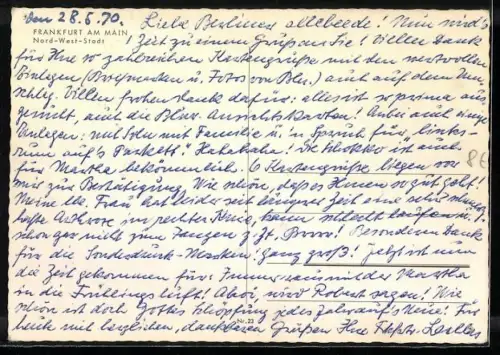 den 28.5.70. Liebe Berliner allebeede! Nun wird's
FRANKFURT AM MAIN
Nord-West-Stadt
Zeit zu einem Gruß an Sie! Vielen Dank
für Ihre so zahlreichen Kartengrüße mit den wertvollen
Einlagen (Briefmarken u. Fotos von Bln.) auch auf dem Um-
schlag. Vielen frohen Dank dafür: alles ist so prima aus-
gewählt, auch die Blner Ansichtskarten! Anbei auch einige
Einlagen: mit Familie u. 'n Spruch für links-
rum auf's Parkett! Hahahaha! Die ist auch
für Martha bekömmlich. 6 Kartengrüße liegen vor
mir zur Bestätigung. Wie schön, daß es Ihnen so gut geht!
Meine lb. Frau hat leider seit längerer Zeit eine sehr schmerz-
hafte Arthrose im rechten Knie, kann schlecht laufen u.
schon gar nicht zum Tanzen z. Zt. Brrrr! Besonderen Dank
für die Sonderdruck-Marken: ganz groß! Jetzt ist nun
die Zeit gekommen für: Immer raus mit der Martha
in die Frühlingsluft! Aber, wird Robert sagen! Wie
schön ist doch Gottes Schöpfung jedes Jahr auf's Neue! Für
heute mit herzlichen, dankbaren Grüßen Ihre
Nr. 23
8€